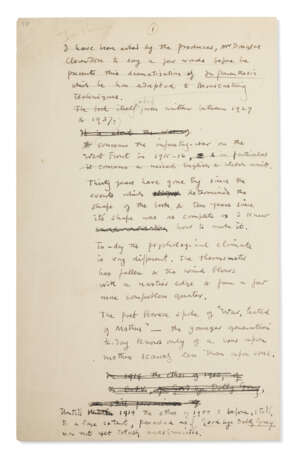 1
I have been asked by the producer, Mr Douglas
Cleverdon to say a few words before he
presents this dramatisation of In Parenthesis
which he has adapted to Broadcasting
techniques.
The book itself was written between 1927
to 1937,
It concerns the infantry-war on the
West Front in 1915-16, & in particular
it concerns a mixed English & Welsh unit.
Thirty years have gone by since the
events which determined the
shape of the book & ten years since
its shape was as complete as I knew
how to make it.
To-day the psychological climate
is very different. The thermometer
has fallen & the wind blows
with a nastier edge & from a far
more compulsive quarter.
The poet Horace spoke of "War, hated
of Mothers" — the younger generation
to-day knows only of a war upon
mothers scarcely less than upon sons.
Until 1914 the ethos of 1900 & before, still,
to a large extent, persisted & "Good-bye Dolly Gray"
was not yet totally anachronistic.